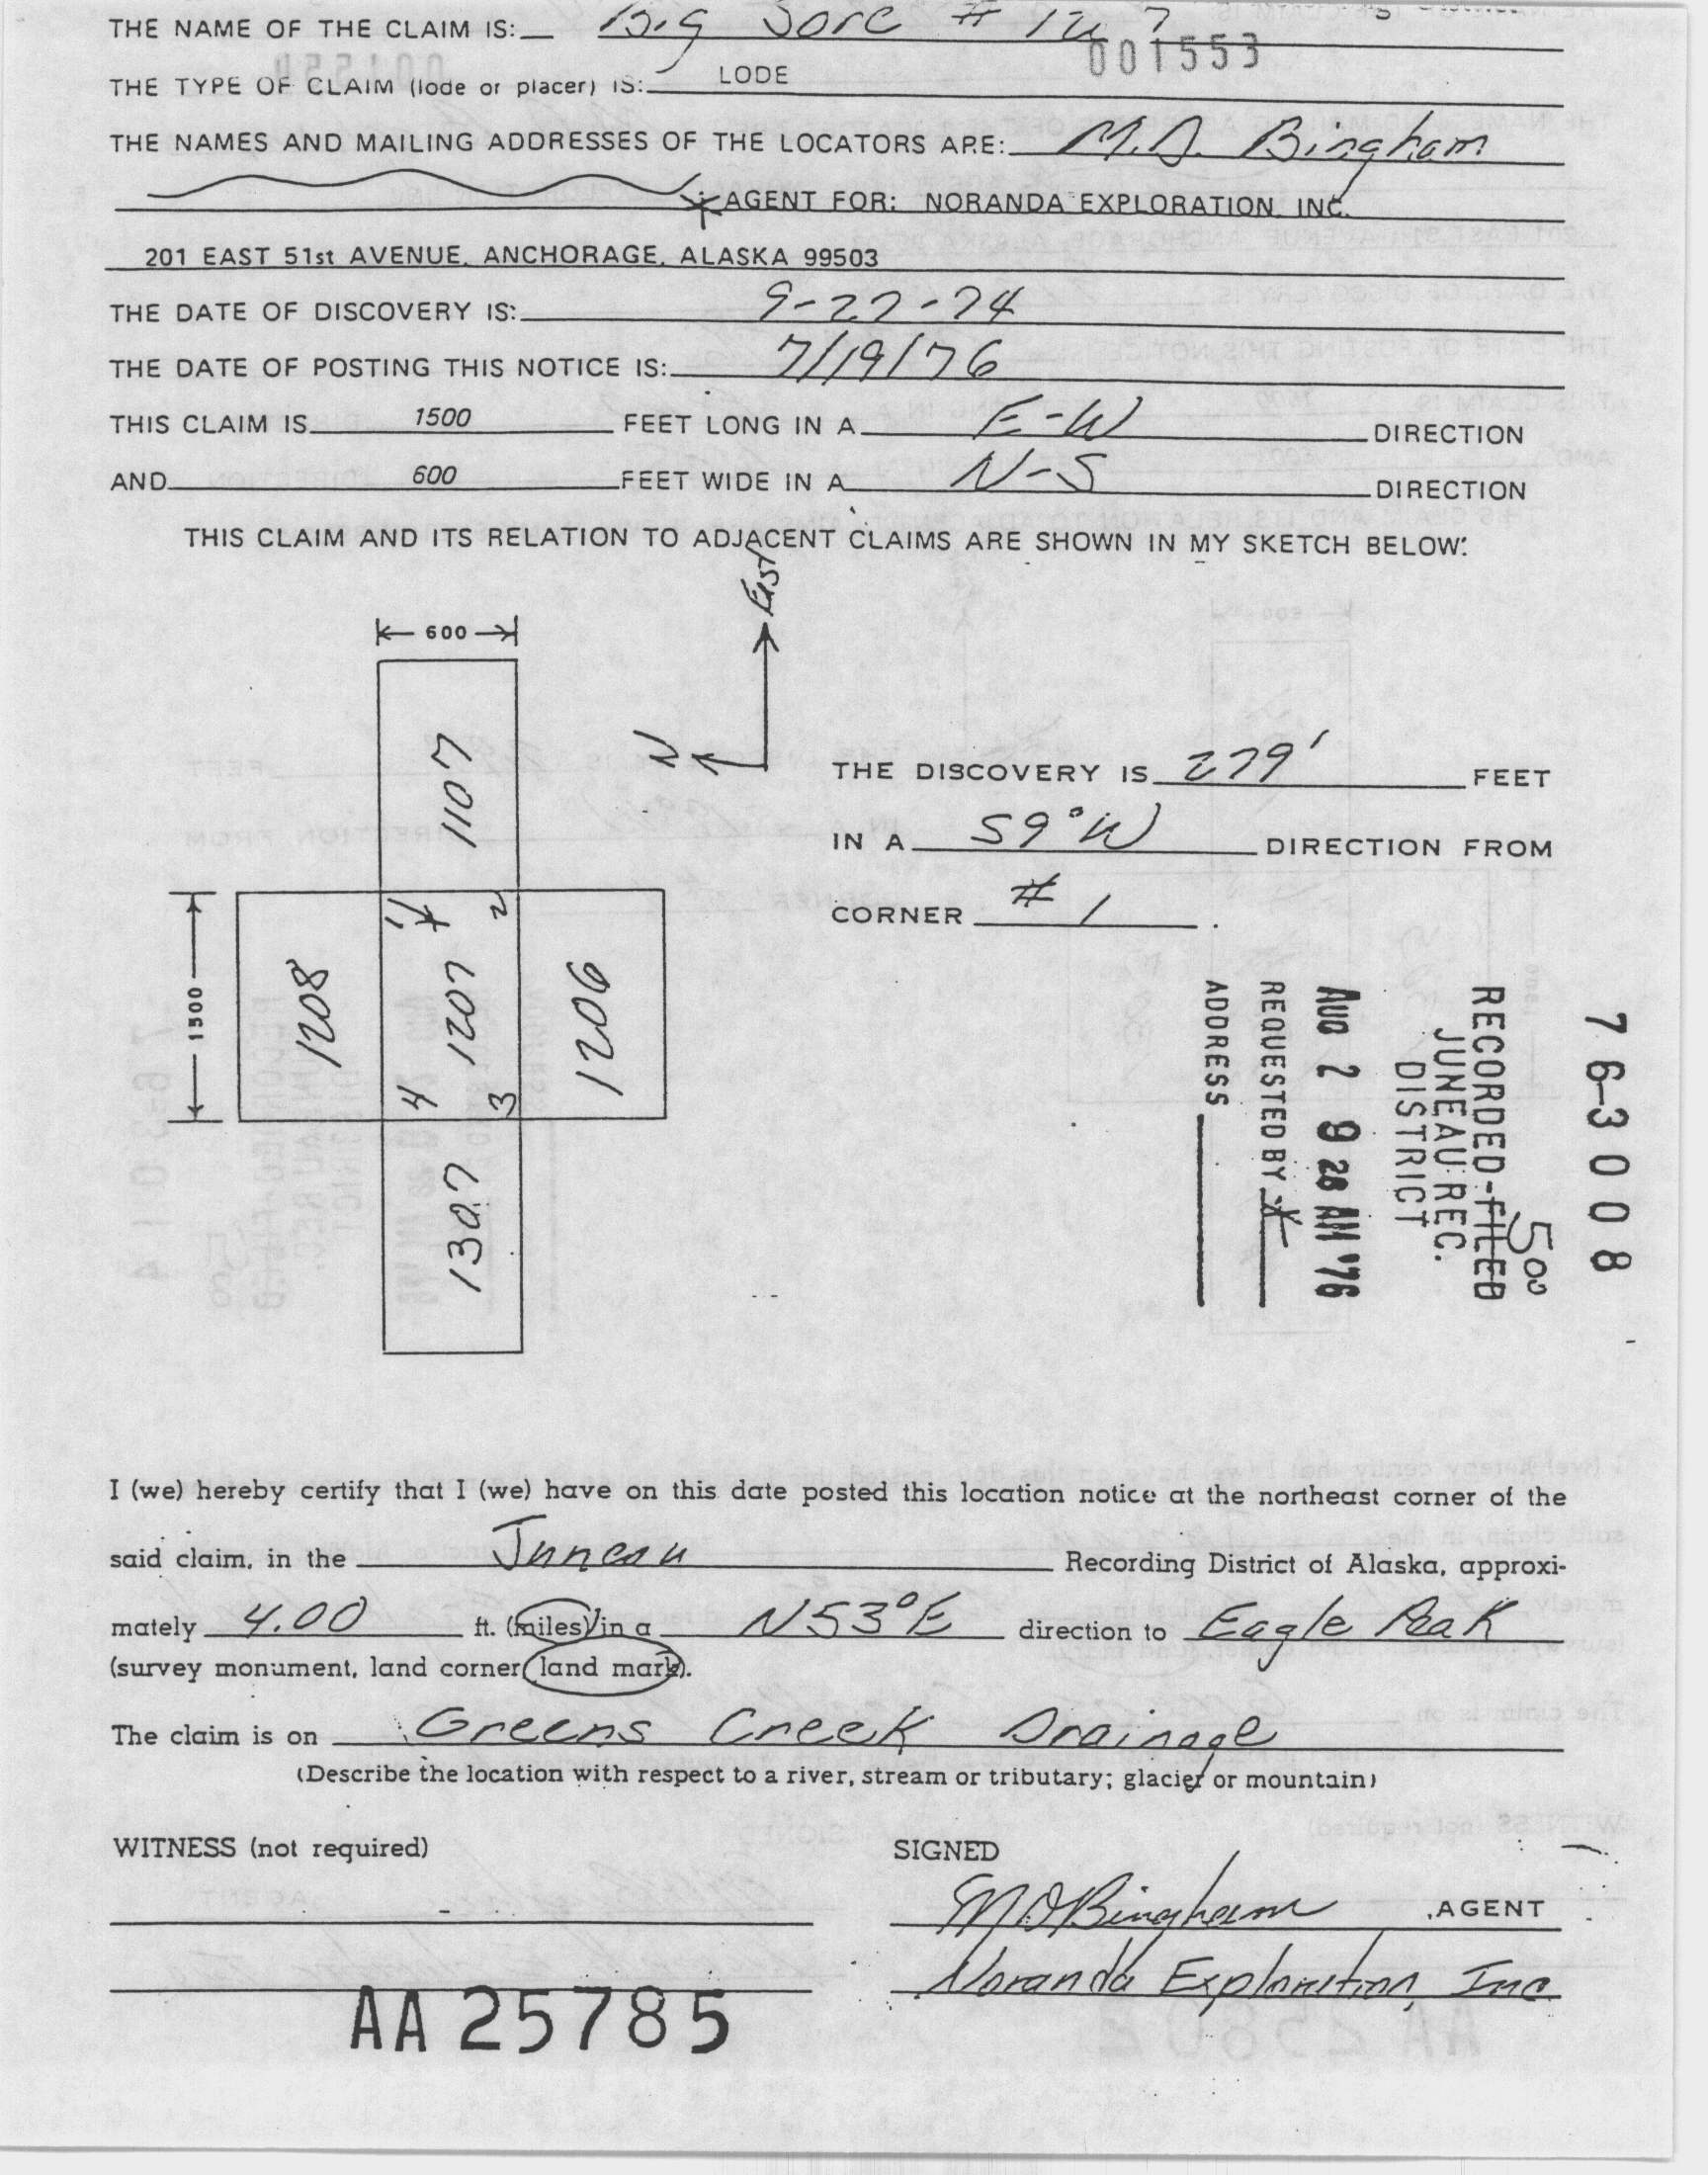 THE NAME OF THE CLAIM IS: Big Sore #
001553
THE TYPE OF CLAIM (lode or placer) IS: LODE
THE NAMES AND MAILING ADDRESSES OF THE LOCATORS ARE: M.D. Bingham
AGENT FOR: NORANDA EXPLORATION, INC.
201 EAST 51st AVENUE, ANCHORAGE, ALASKA 99503
THE DATE OF DISCOVERY IS: 9-27-74
THE DATE OF POSTING THIS NOTICE IS: 7/19/76
THIS CLAIM IS 1500 FEET LONG IN A E-W DIRECTION
AND 600 FEET WIDE IN A N-S DIRECTION
THIS CLAIM AND ITS RELATION TO ADJACENT CLAIMS ARE SHOWN IN MY SKETCH BELOW:
East
N
600
1107
1500
1208
1 2
1207
4 3
1206
1307
THE DISCOVERY IS 279' FEET
IN A S9°W DIRECTION FROM
CORNER # 1.
76-3008
500
RECORDED-FILED
JUNEAU REC.
DISTRICT
AUG 2 9 28 AM '76
REQUESTED BY
ADDRESS
I (we) hereby certify that I (we) have on this date posted this location notice at the northeast corner of the
said claim, in the Juneau Recording District of Alaska, approxi-
mately 4.00 ft. (miles) in a N53°E direction to Eagle Peak
(survey monument, land corner, land mark).
The claim is on Greens Creek Drainage
(Describe the location with respect to a river, stream or tributary; glacier or mountain)
WITNESS (not required)
SIGNED
MDBingham , AGENT
Noranda Exploration, Inc.
AA 25785